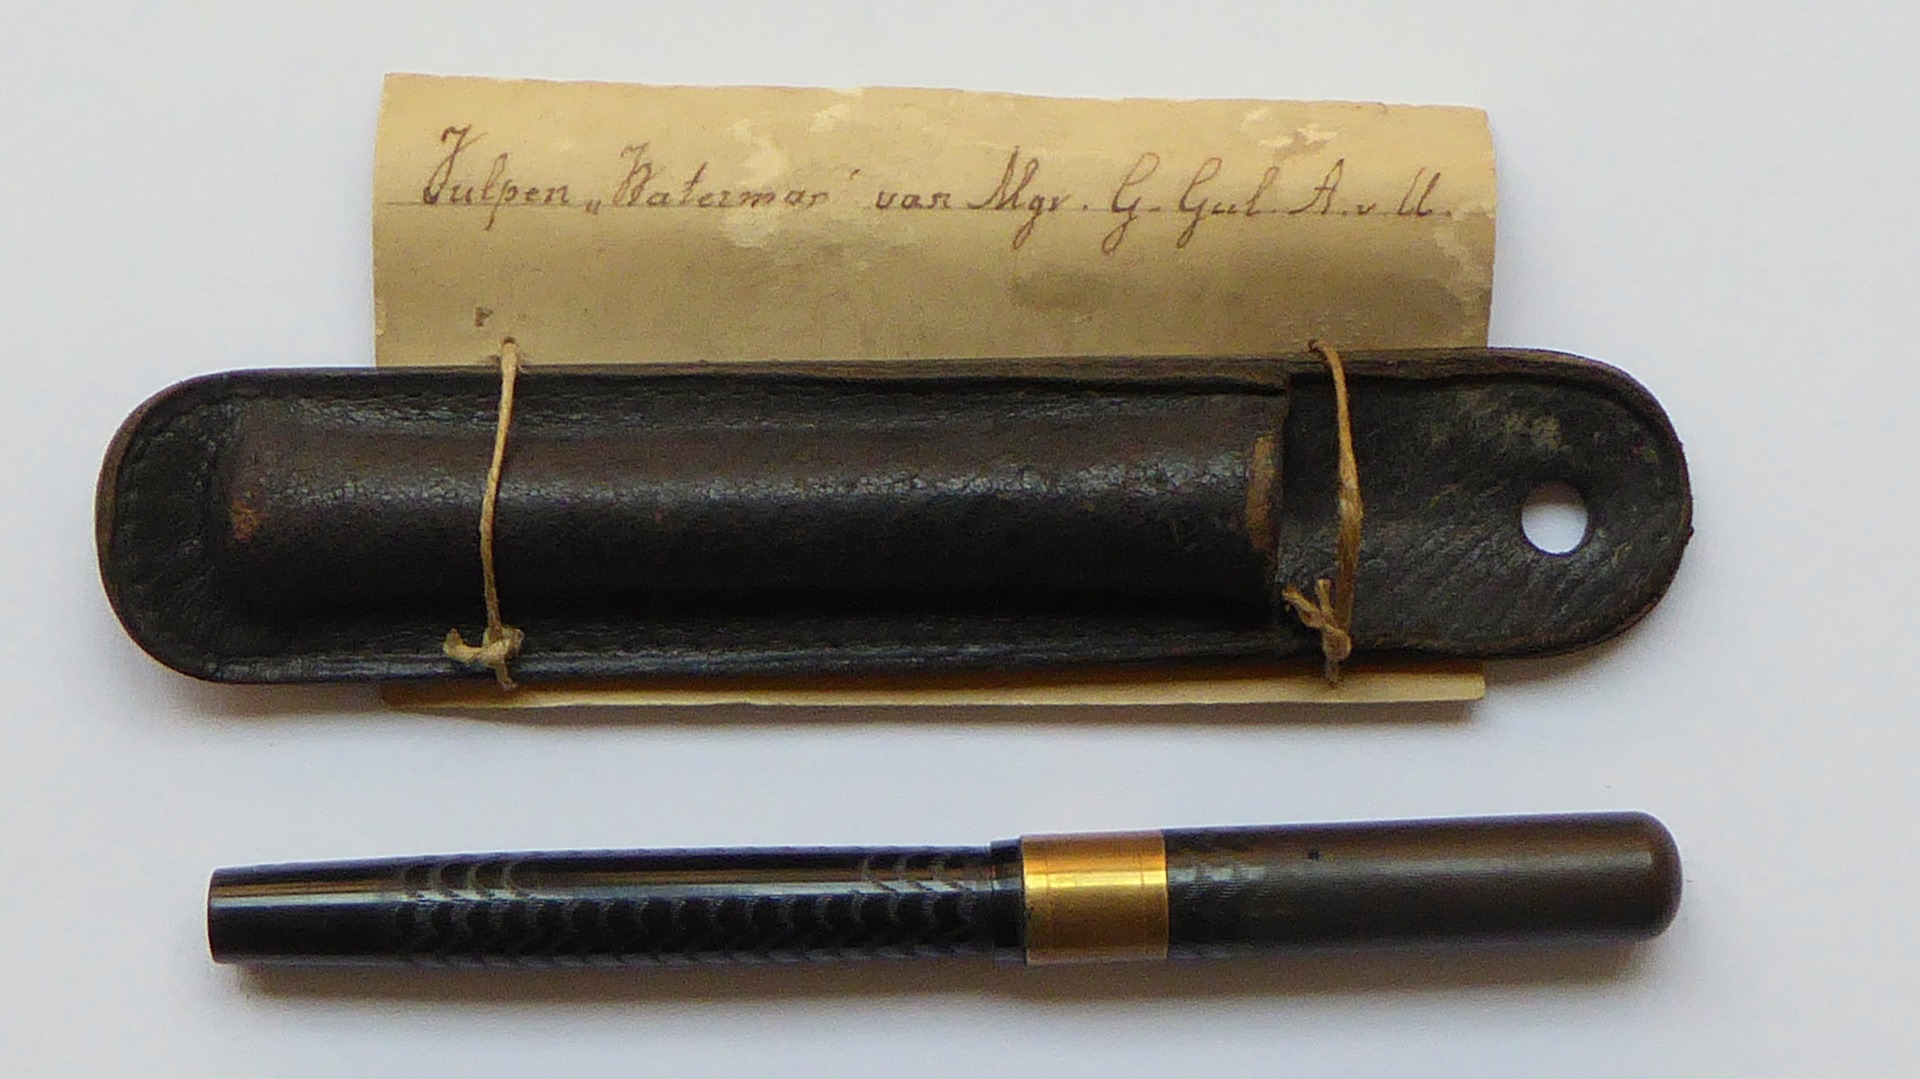 Vulpen „Waterman" van Mgr. G. Gul A. v U.